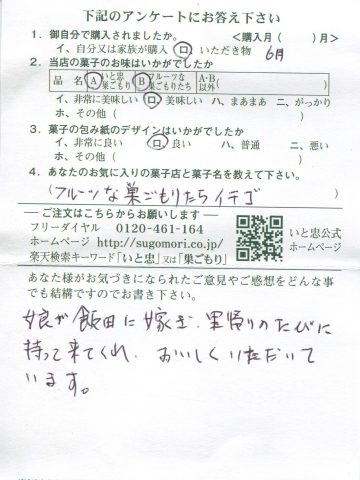 下記のアンケートにお答え下さい
1. 御自分で購入されましたか。 <購入月( )月>
イ、自分又は家族が購入 ロ、いただき物 6月
2. 当店の菓子のお味はいかがでしたか
品 名 A いと忠巣ごもり B フルーツな巣ごもりたち A・B以外( )
イ、非常に美味しい ロ、美味しい ハ、まあまあ ニ、がっかり
ホ、その他( )
3. 菓子の包み紙のデザインはいかがでしたか
イ、非常に良い ロ、良い ハ、普通 ニ、悪い
ホ、その他( )
4. あなたのお気に入りの菓子店と菓子名を教えて下さい。
(フルーツな巣ごもりたちイチゴ )
ご注文はこちらからお願いします
フリーダイヤル 0120-461-164
ホームページ http://sugomori.co.jp/
楽天検索キーワード「いと忠」又は「巣ごもり」
いと忠公式
ホームページ
あなた様がお気づきになられたご意見やご感想をどんな事
でも結構ですのでお書き下さい。
娘が飯田に嫁ぎ、里帰りのたびに
持って来てくれ、おいしくいただいて
います。